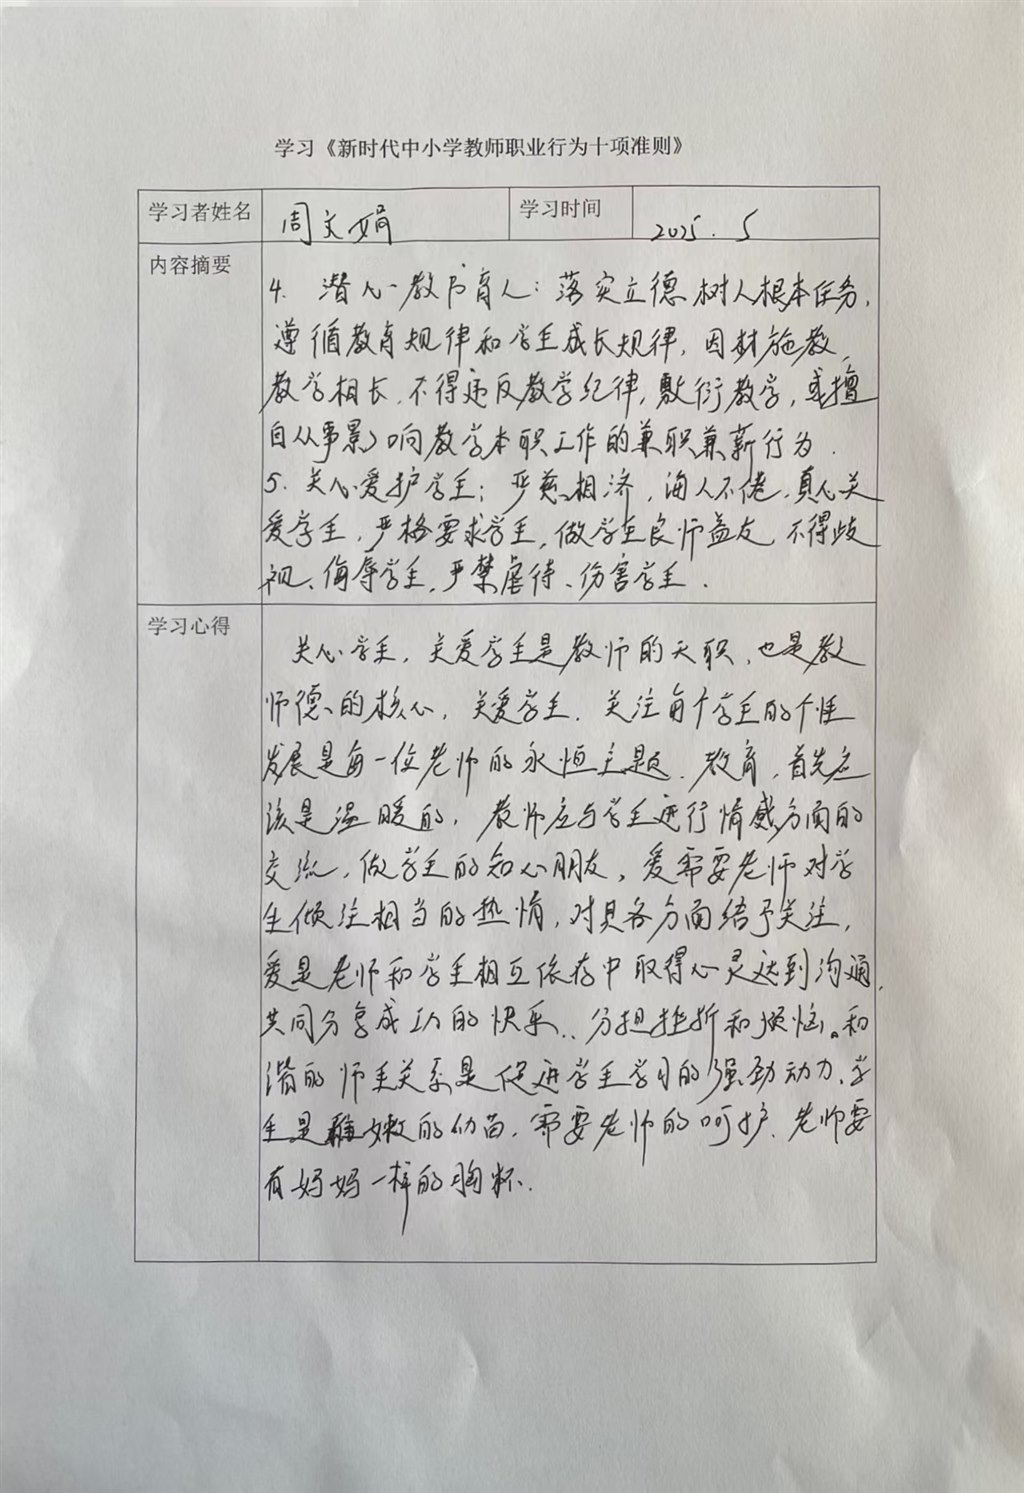 学习《新时代中小学教师职业行为十项准则》
学习者姓名 周文娟 学习时间 2025.5
内容摘要
4. 潜心教书育人：落实立德树人根本任务，
遵循教育规律和学生成长规律，因材施教，
教学相长，不得违反教学纪律，敷衍教学，或擅
自从事影响教学本职工作的兼职兼薪行为．
5. 关心爱护学生：严慈相济，诲人不倦，真心关
爱学生，严格要求学生，做学生良师益友，不得歧
视、侮辱学生，严禁虐待、伤害学生．
学习心得
关心学生，关爱学生是教师的天职，也是教
师德的核心，关爱学生．关注每个学生的个性
发展是每一位老师的永恒主题．教育，首先应
该是温暖的，教师应与学生进行情感方面的
交流，做学生的知心朋友，爱需要老师对学
生倾注相当的热情，对其各方面给予关注，
爱是老师和学生相互依存中取得心灵达到沟通，
共同分享成功的快乐、分担挫折和烦恼。和
谐的师生关系是促进学生学习的强劲动力，学
生是稚嫩的幼苗，需要老师的呵护．老师要
有妈妈一样的胸怀．